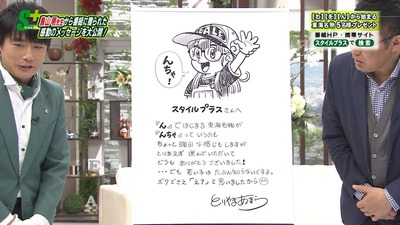 S+
鳥山明先生から番組に贈られた
感動のメッセージを大公開!
【わ】【を】【ん】から始まる
東海名物 5名様プレゼント
番組HP・携帯サイト
スタイルプラス 検索
んちゃ!
スタイルプラスさんへ
『ん』ではじまる東海名物が
『んちゃ』っていうのも
ちょっと強引な感じもしますが
とりあえず 選んでいただいて
どうも ありがとうございました!
…でも 若い子は たぶん知らないですよ。
ボクでさえ「え?」って思いましたから
とりやまあきら